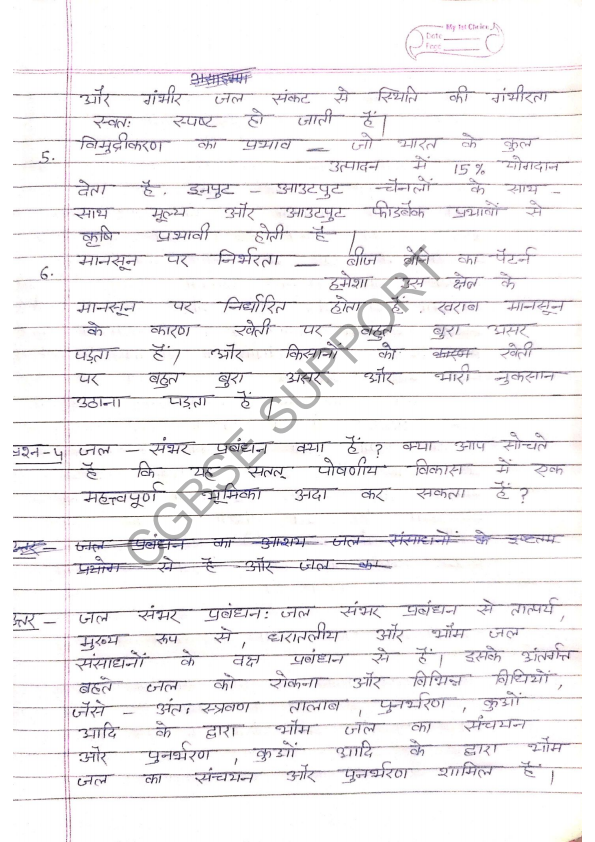 My 1st Choice
Date
Page
और गंभीर जल संकट से स्थिति की गंभीरता
स्वतः स्पष्ट हो जाती हैं।
5. विमुद्रीकरण का प्रभाव – जो भारत के कुल
उत्पादन में 15% योगदान
देता है. इनपुट – आउटपुट चैनलों के साथ –
साथ मूल्य और आउटपुट फीडबैक प्रभावों से
कृषि प्रभावी होती है।
6. मानसून पर निर्भरता – बीज बोने का पैटर्न
हमेशा उस क्षेत्र के
मानसून पर निर्धारित होता हैं. खराब मानसून
के कारण खेती पर बहुत बुरा असर
पड़ता हैं। और किसानों को कारण खेती
पर बहुत बुरा असर और भारी नुकसान
उठाना पड़ता हैं।
प्रश्न-4 जल – संभर प्रबंधन क्या हैं? क्या आप सोचते
है कि यह सतत् पोषणीय विकास में एक
महत्त्वपूर्ण भूमिका अदा कर सकता हैं?
उत्तर – जल प्रबंधन का आशय जल संसाधनों के
प्रयोग से है और जल का
उत्तर – जल संभर प्रबंधन: जल संभर प्रबंधन से तात्पर्य,
मुख्य रूप से, धरातलीय और भौम जल
संसाधनों के दक्ष प्रबंधन से हैं। इसके अंतर्गत
बहते जल को रोकना और विभिन्न विधियों,
जैसे – अंतः स्त्रवण तालाब, पुनर्भरण, कुओं
आदि के द्वारा भौम जल का संचयन
और पुनर्भरण, कुओं आदि के द्वारा भौम
जल का संचयन और पुनर्भरण शामिल हैं।
CGBSE SUPPORT